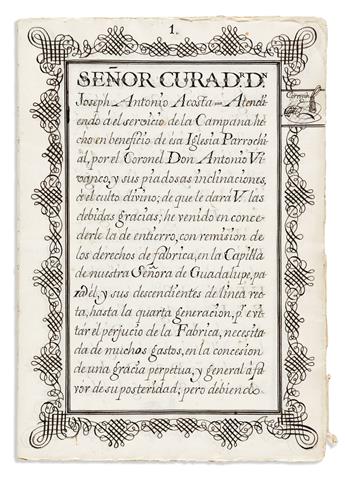 1.
SEÑOR CURA D.r D.n
Joseph Antonio Acosta = Atendi
endo á el servicio de la Campana he
cho en beneficio de esa Iglesia Parrochi
al, por el Coronel Don Antonio Vi
vanco, y sus piadosas inclinaciones,
á el culto divino; de que le dará V. las
debidas gracias; he venido en conce
derle la de entierro, con remision de
los derechos de fabrica, en la Capilla
de nuestra Señora de Guadalupe, pa
ra él, y sus descendientes de linea rec
ta, hasta la quarta generacion, p.r evi
tar el perjucio de la Fabrica, necesita
da de muchos gastos, en la concesion
de una gracia perpetua, y general á fa
vor de su posteridad; pero debiendo